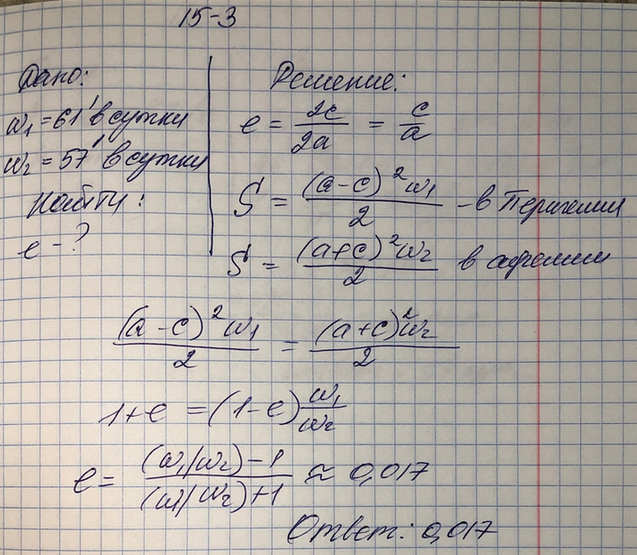 15-3
Дано:
ω₁ = 61' в сутки
ω₂ = 57' в сутки
Найти:
e - ?
Решение:
e = 2c/2a = c/a
S = (a-c)²ω₁/2 - в Перигелии
S = (a+c)²ω₂/2 в афелии
(a-c)²ω₁/2 = (a+c)²ω₂/2
1+e = (1-e) ω₁/ω₂
e = (ω₁/ω₂)-1/(ω/ω₂)+1 ≈ 0,017
Ответ: 0,017